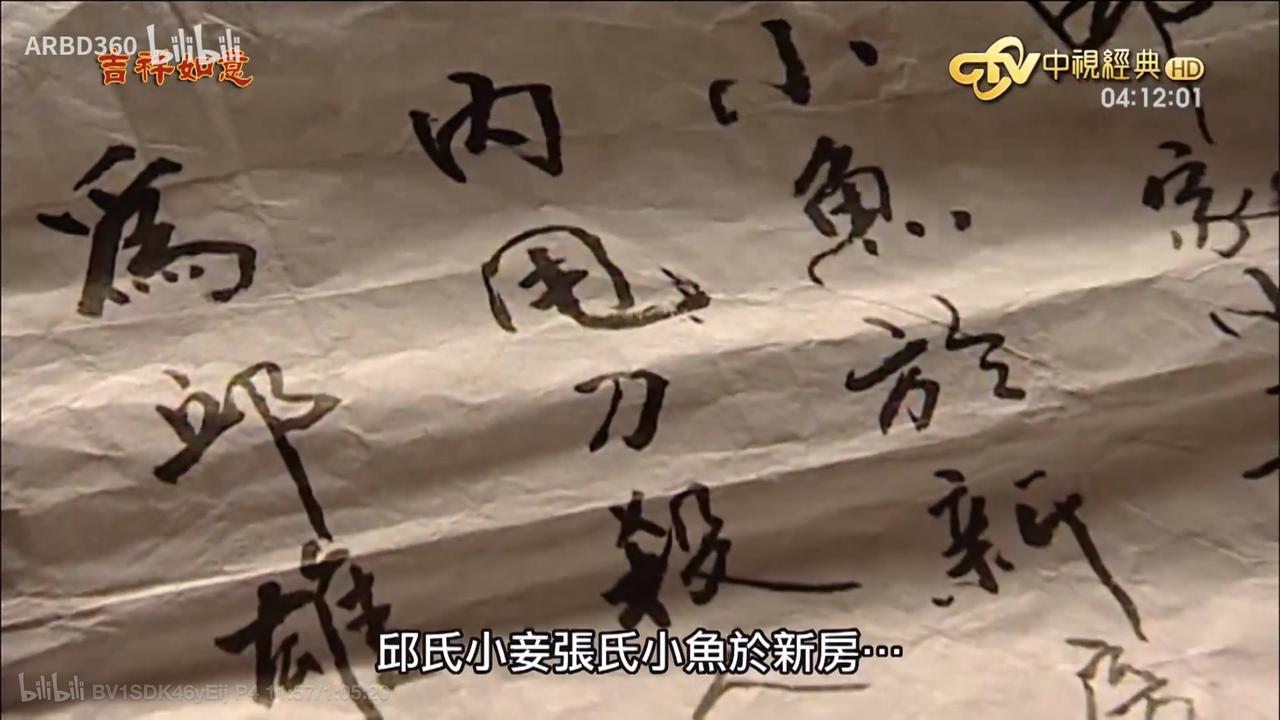 ARBD360 bilibili
吉祥如意
CTV中視經典HD
04:12:01
家小
小魚於新房
內甩刀殺
爲邱雄
邱氏小妾張氏小魚於新房…
bilibili BV1SDK46yEij P4 11:57/1:05:20